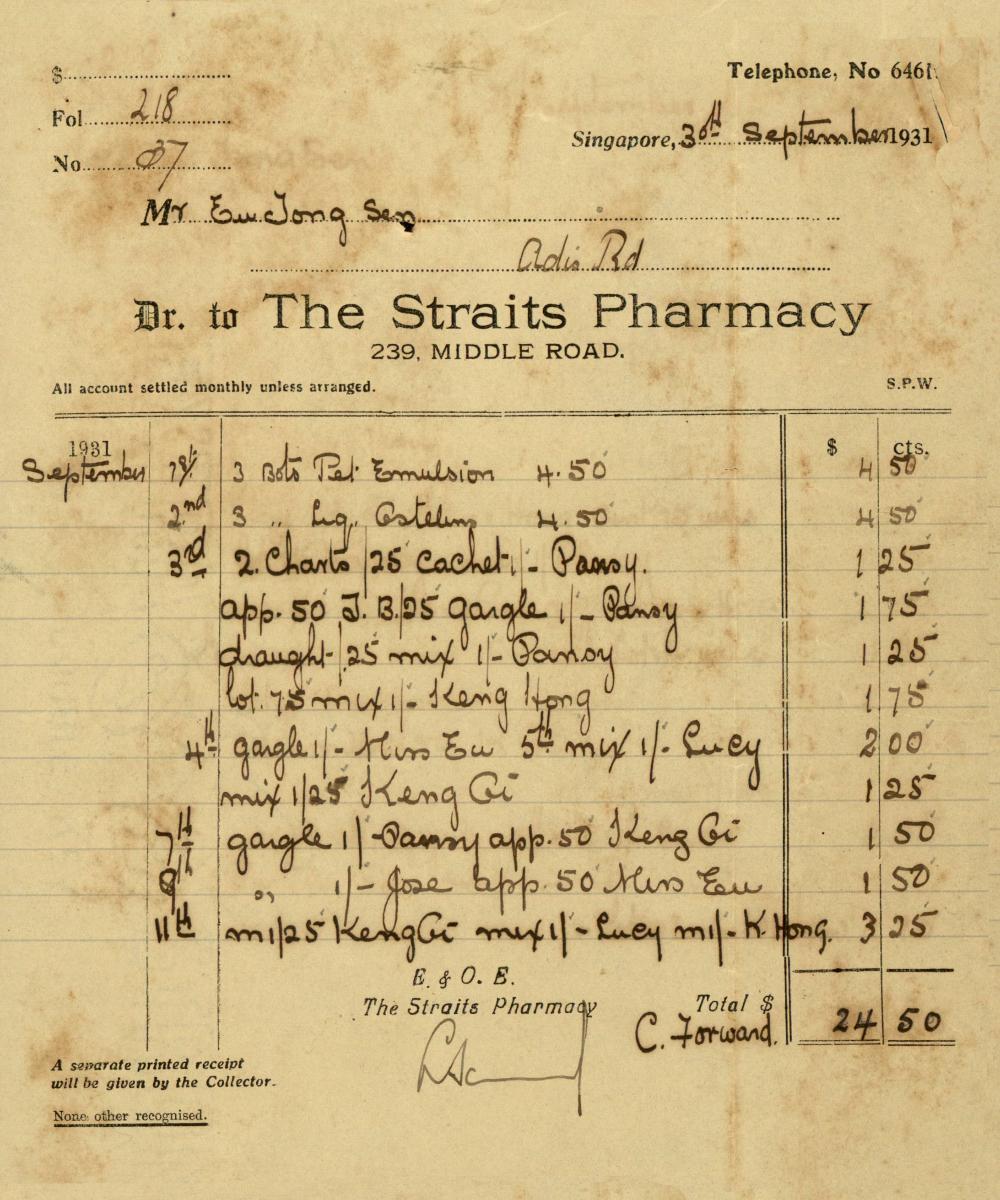 $
Telephone, No 6461.
Fol 218
Singapore, 30th September 1931
No 37
Mr Eu Tong Sen
Adis Rd
Dr. to The Straits Pharmacy
239, MIDDLE ROAD.
All account settled monthly unless arranged.
S.P.W.
1931 $ cts.
September 3 Bots Pet Emulsion 4.50 4 50
2nd 3 " Liq. Ostelin 4.50 4 50
3rd 2. Charts /25 cachet 1/- Pansy. 1 25
app. 50 T. B. /25 gargle 1/- Pansy 1 75
draught /25 mix 1/- Pansy 1 25
lot. 75 mix 1/- Keng Hong 1 75
4th gargle 1/- Mrs Eu 5th mix 1/- Lucy 2 00
mix 1/25 Keng Gi 1 25
7th gargle 1/- Pansy app. 50 Keng Gi 1 50
9th " 1/- Jose app. 50 Mrs Eu 1 50
11th m1/25 Keng Gi mix 1/- Lucy m1/- K. Hong. 3 25
E. & O. E.
The Straits Pharmacy
Total $
C. Forward. 24 50
A separate printed receipt
will be given by the Collector.
None other recognised.